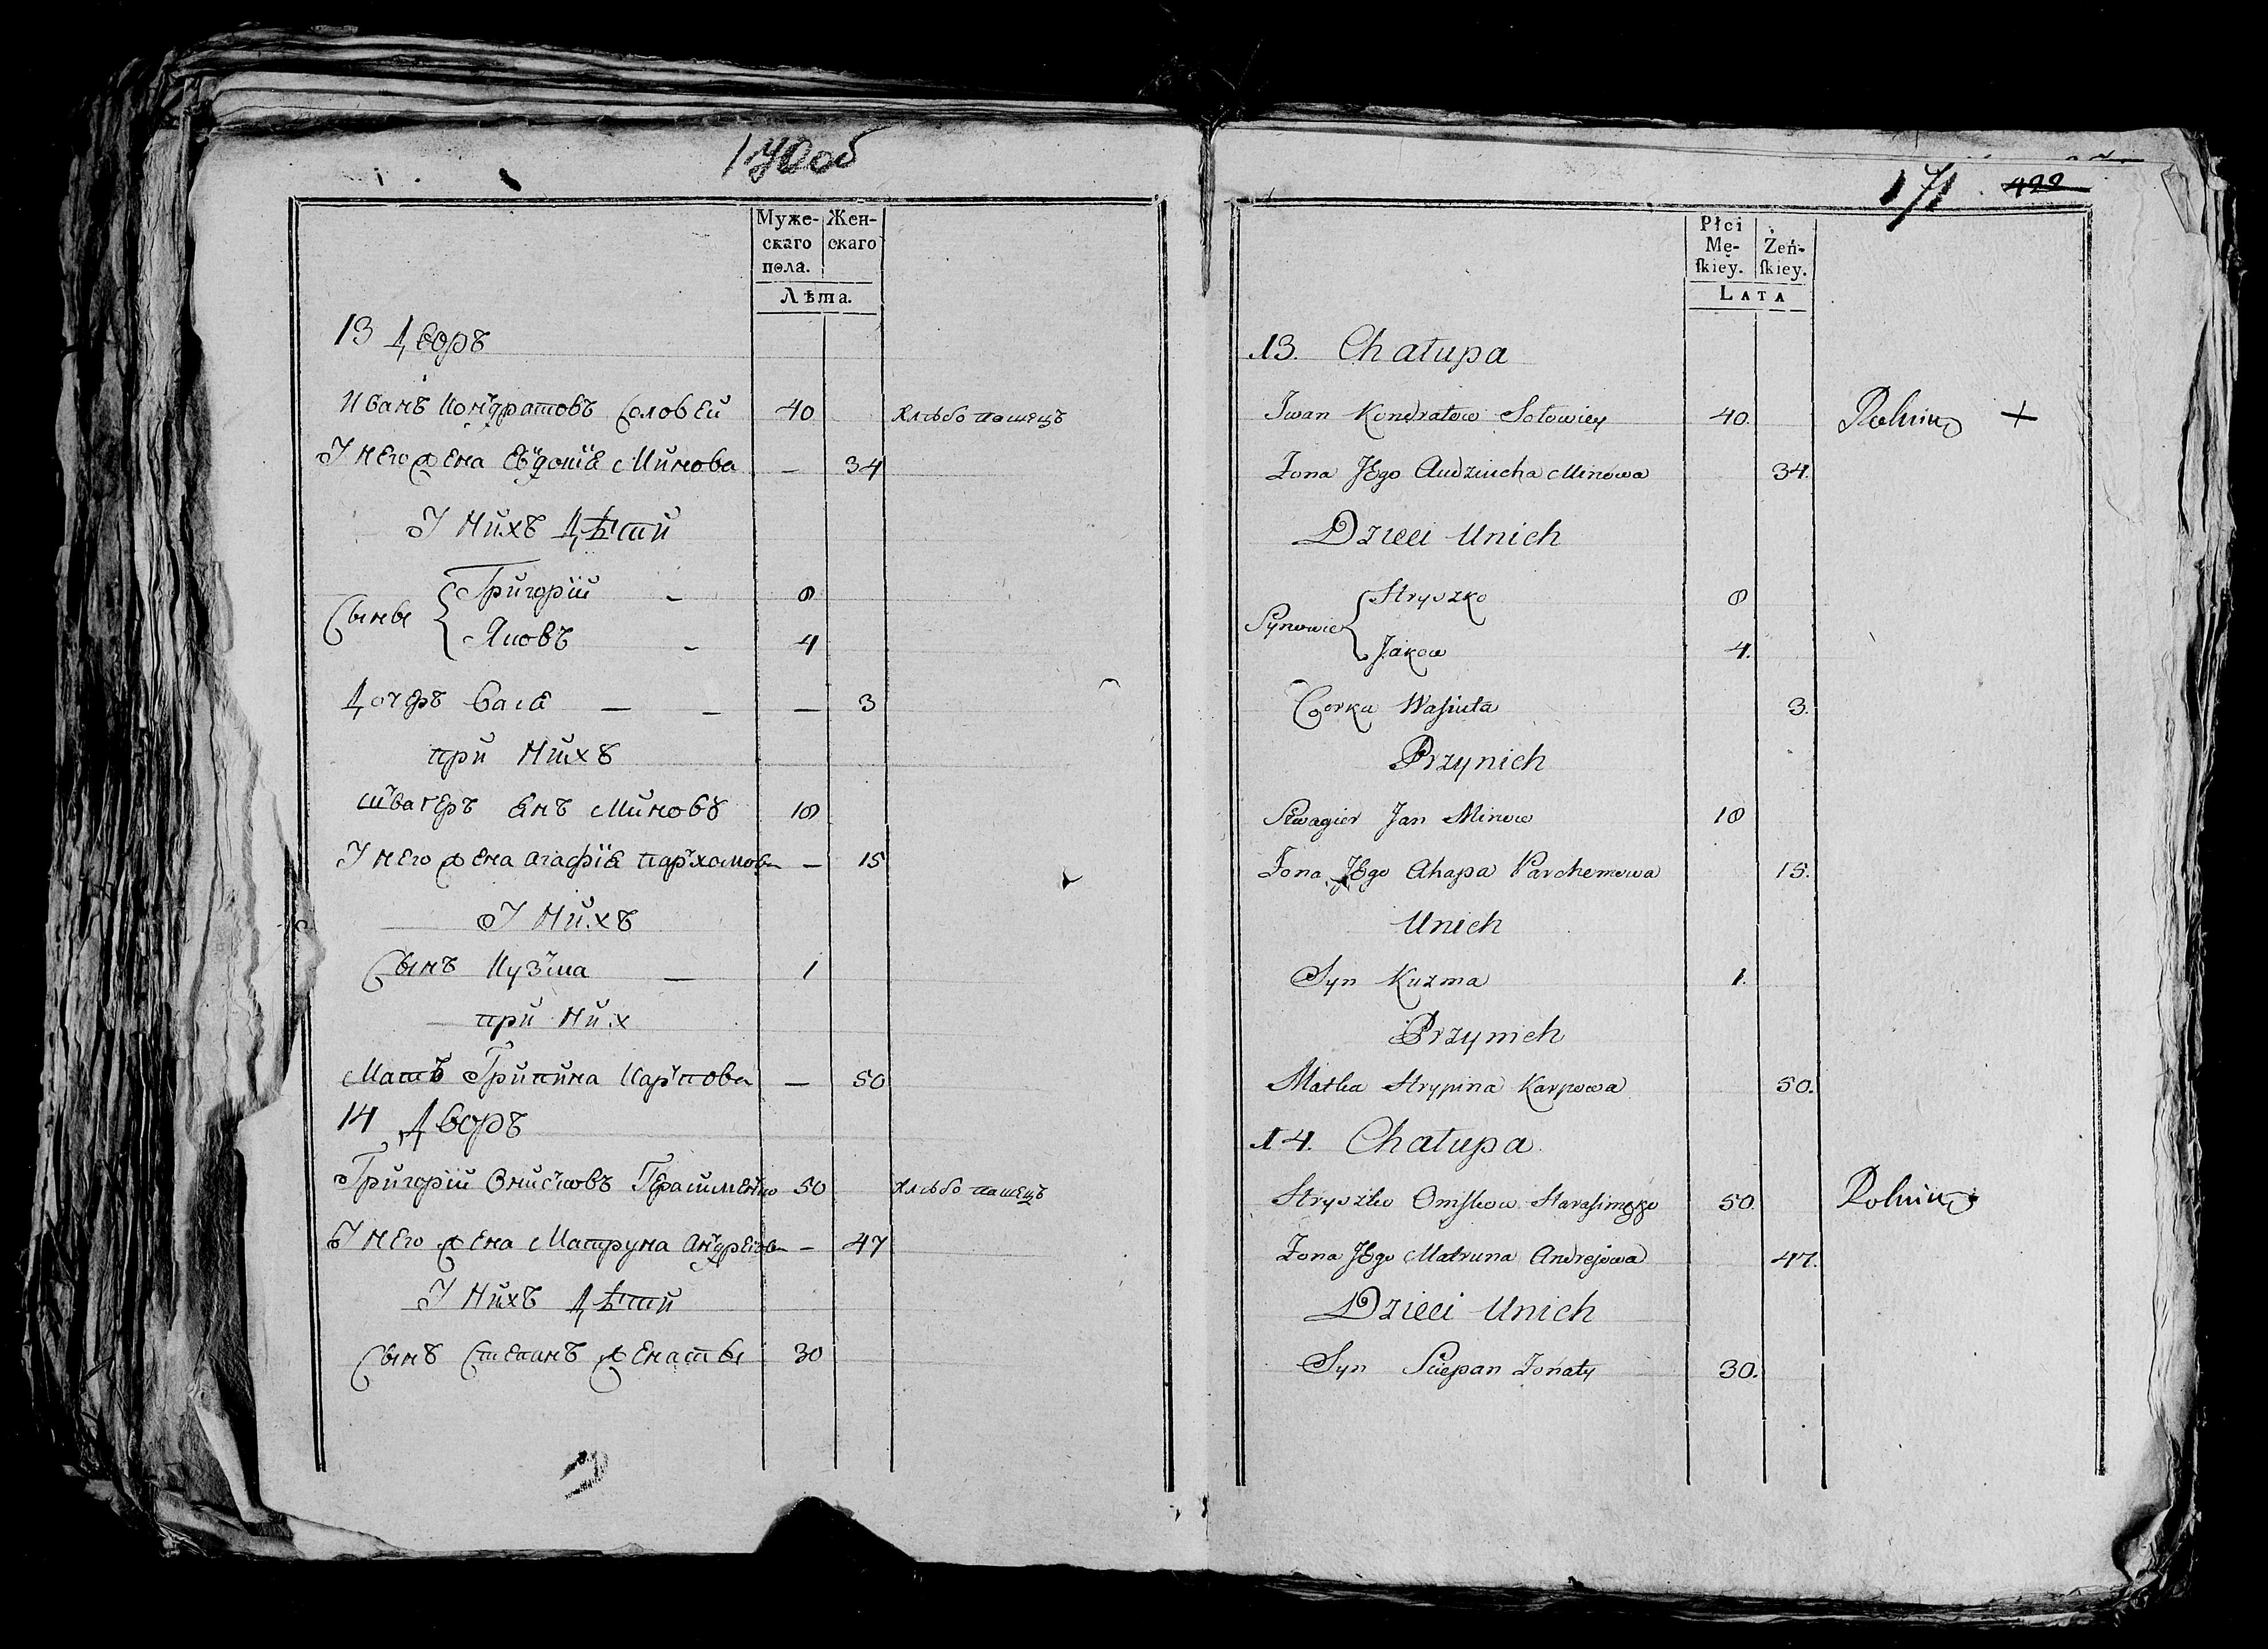 170об
Муже-
скаго
пола.
Жен-
скаго
Лѣта.
13 Дворъ
Иванъ Кондратовъ Соловей 40 Хлѣбопашецъ
У него жена Евдокія Минова — 34
У нихъ дѣти
Сыны { Григорій - 8
Яковъ - 4
Дочеръ Вася — - — 3
при нихъ
швагеръ Янъ Миновъ 18
У него жена Агафія Пархомова — 15
У нихъ
Сынъ Кузма — 1
при них
Мать Грипина Карпова — 50
14 Дворъ
Григорій Онисковъ Герасименко 50 Хлѣбопашецъ
У него жена Матруна Андреева — 47
У нихъ дѣти
Сынъ Степанъ женаты 30
171 422
Płci
Mę-
ſkiey.
Żeń-
ſkiey.
LATA
13. Chałupa
Jwan Kondratow Sołowiey 40. Rolnik +
Zona Jego Audziucha Minowa 34.
Dzieci Unich
Synowie { Hryszko 8
Jakow 4.
Corka Wasiuta 3.
Przynich
Szwagier Jan Minow 18
Zona Jego Ahapa Parchemowa 15.
Unich
Syn Kuzma 1.
Przynich
Matka Hrypina Karpowa 50.
14. Chałupa
Hryszko Oniskow 50. Rolnik
Zona Jego Matruna Andrejowa 47.
Dzieci Unich
Syn Sciepan Zonaty 30.